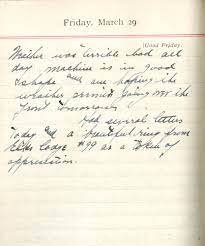 Friday, March 29
Good Friday.
Weather was terrible bad all
day machine is in good
shape and are hoping the
weather permits going over the
front tomorrow.
Red several letters
today and a beautiful ring from
Elks Lodge #99 as a token of
appreciation.